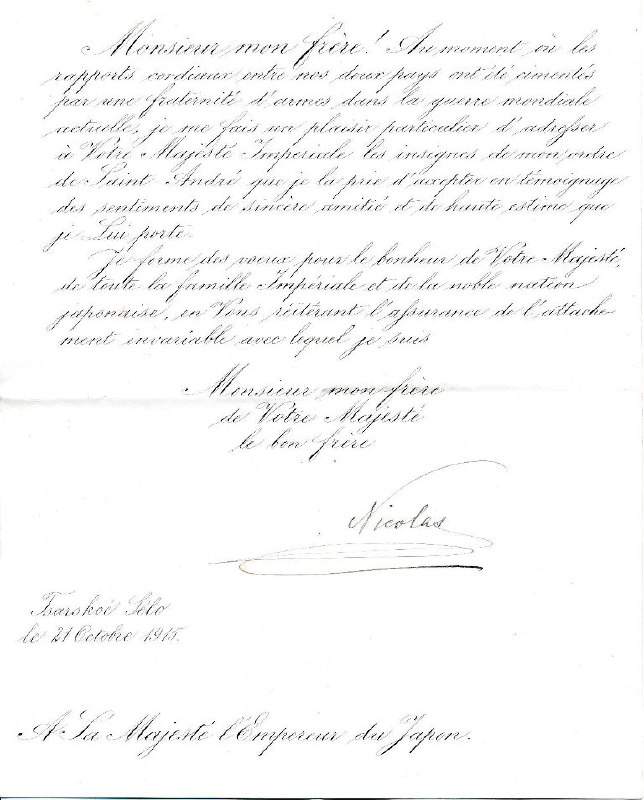 Monsieur mon frère! Au moment où les
rapports cordiaux entre nos deux pays ont été cimentés
par une fraternité d'armes dans la guerre mondiale
actuelle, je me fais un plaisir particulier d'adresser
à Votre Majesté Impériale les insignes de mon ordre
de Saint André que je la prie d'accepter en témoignage
des sentiments de sincère amitié et de haute estime que
je Lui porte.
Je forme des voeux pour le bonheur de Votre Majesté,
de toute la famille Impériale et de la noble nation
japonaise, en Vous réitérant l'assurance de l'attache
ment invariable avec lequel je suis
Monsieur mon frère
de Votre Majesté
le bon frère
Nicolas
Tsarskoé Sélo
le 21 Octobre 1915.
A Sa Majesté l'Empereur du Japon.